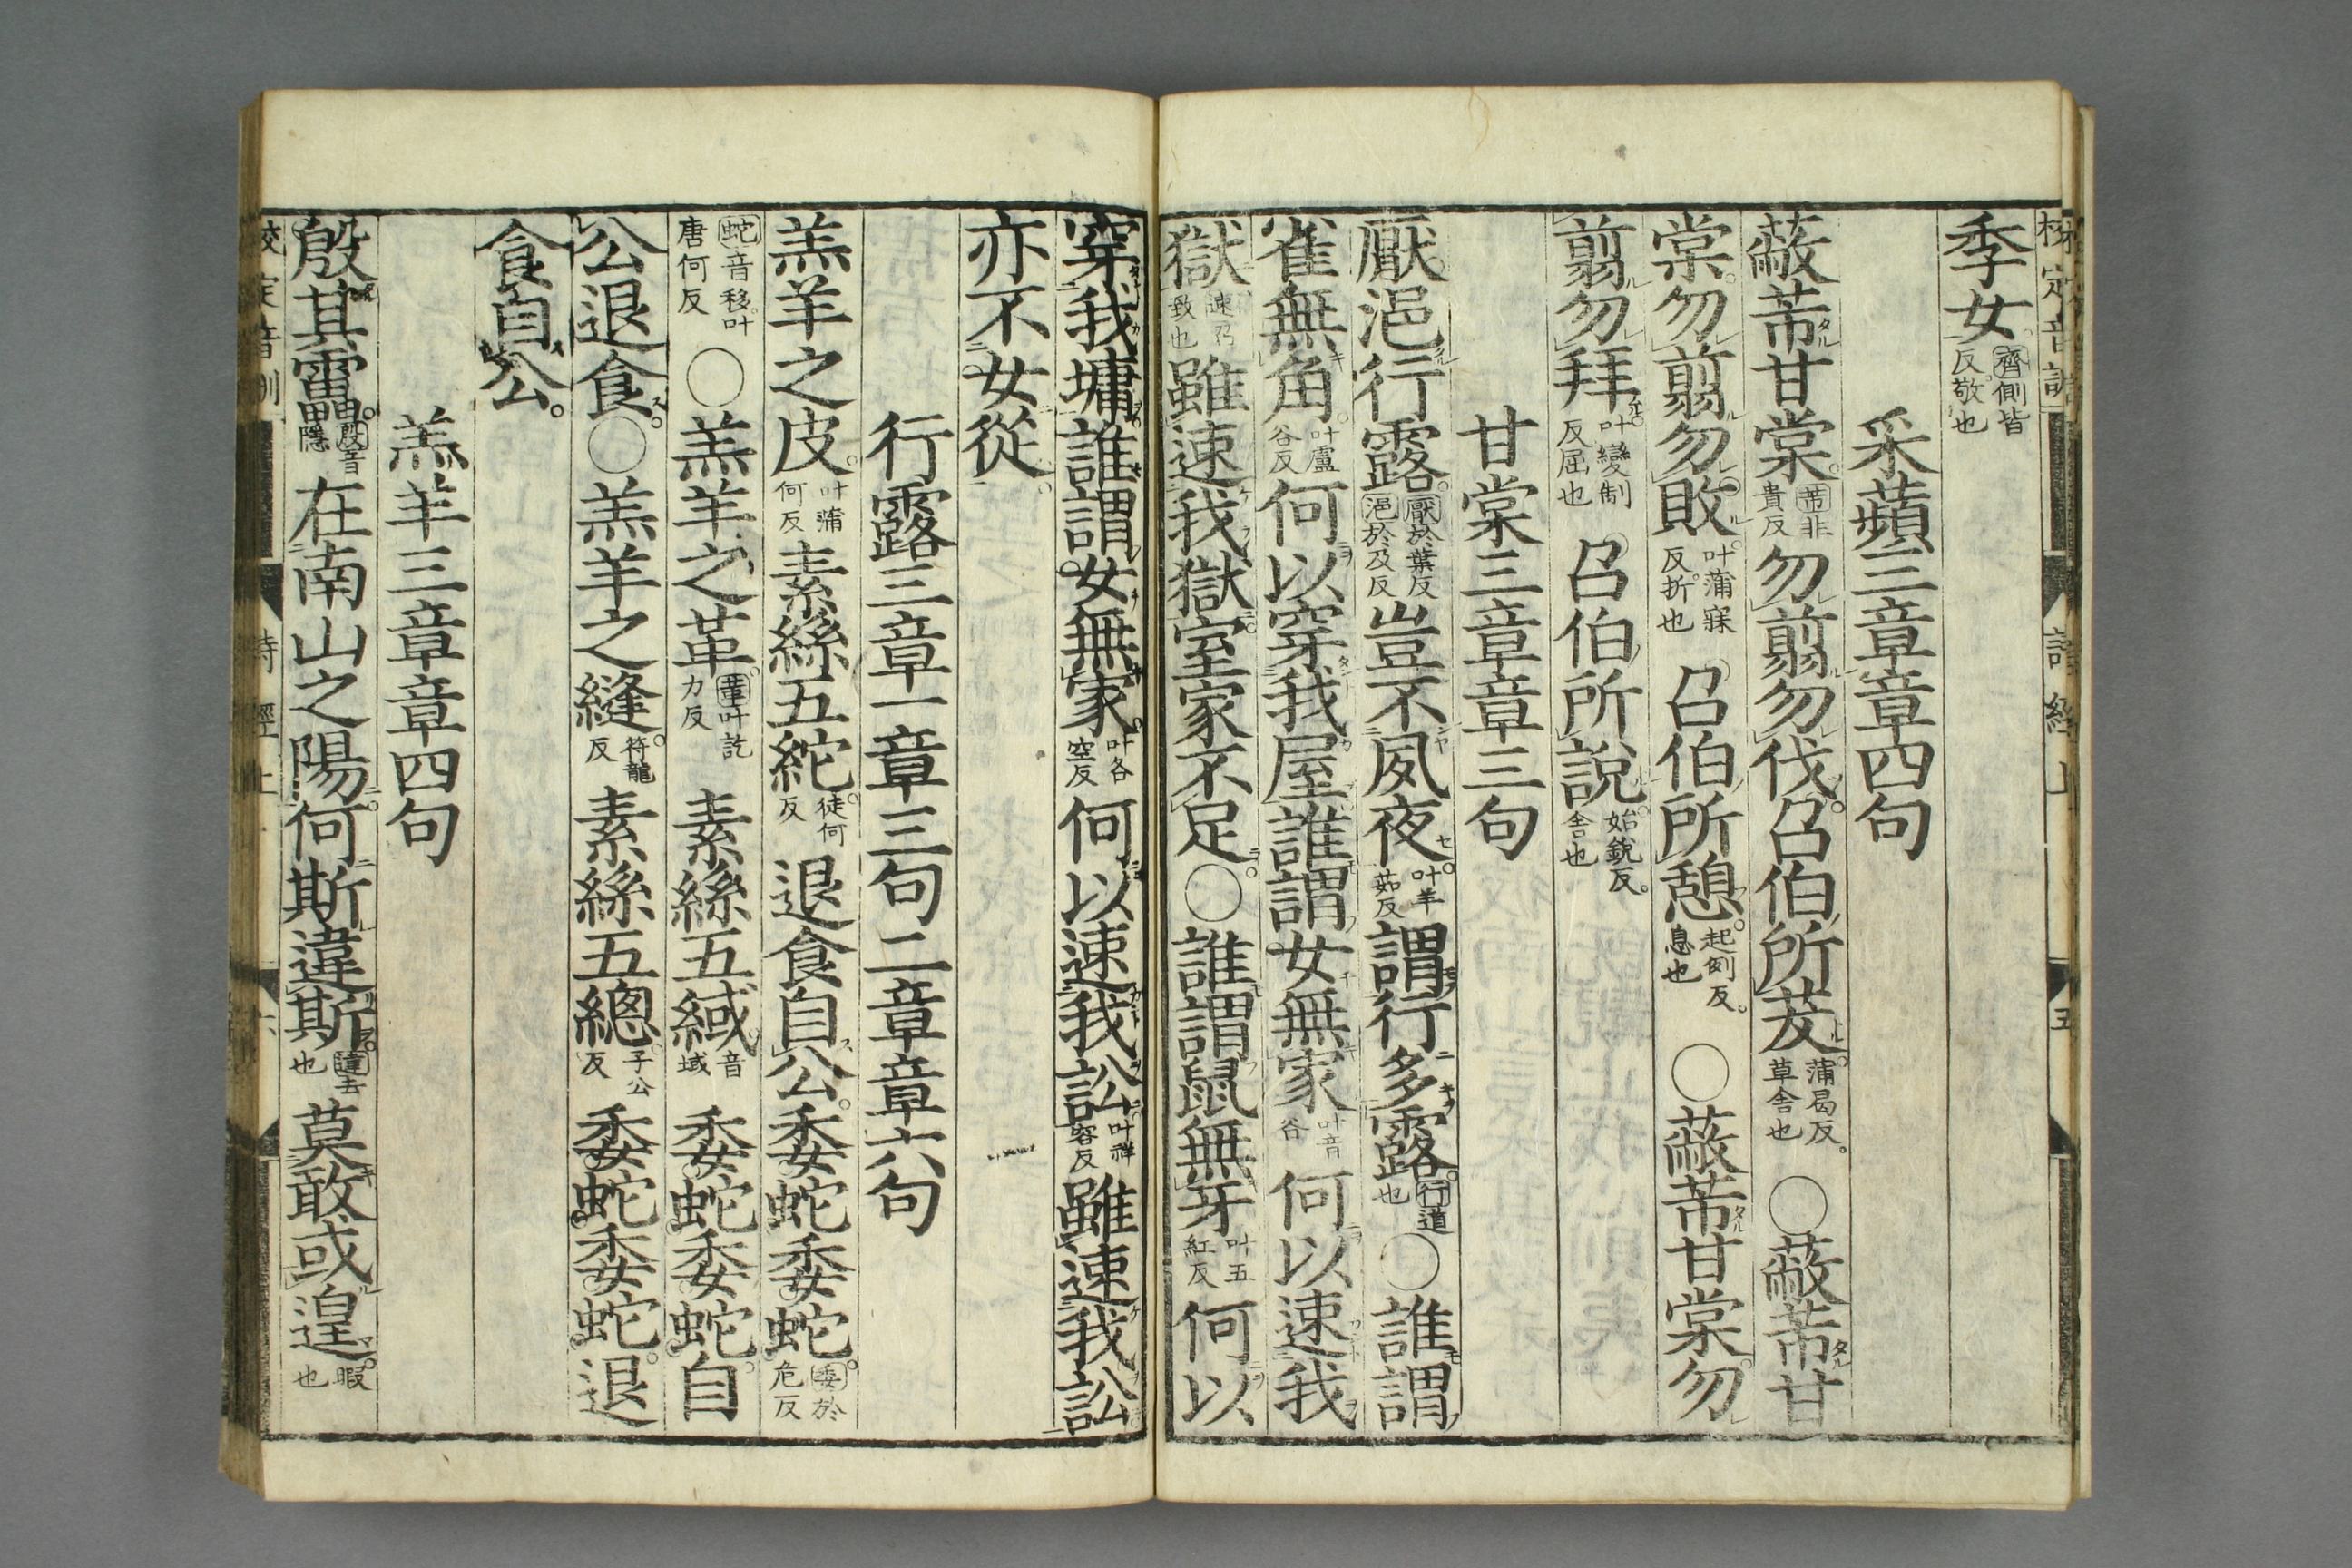 校定音訓 詩經上 五
季女齊側皆反敬也
采蘋三章章四句
蔽芾甘棠芾非貴反勿翦勿伐召伯所茇蒲曷反草舍也○蔽芾甘
棠勿翦勿敗叶蒲寐反折也召伯所憩起例反息也○蔽芾甘棠勿
翦勿拜叶變制反屈也召伯所說始銳反舍也
甘棠三章章三句
厭浥行露厭於葉反浥於及反豈不夙夜叶羊茹反謂行多露行道也○誰謂
雀無角叶盧谷反何以穿我屋誰謂女無家叶音谷何以速我
獄速乃致也雖速我獄室家不足○誰謂鼠無牙叶五紅反何以
穿我墉誰謂女無家叶各空反何以速我訟叶祥容反雖速我訟
亦不女從
行露三章一章三句二章章六句
羔羊之皮叶蒲何反素絲五紽徒何反退食自公委蛇委蛇委於危反
蛇音移叶唐何反○羔羊之革革叶訖力反素絲五緎音域委蛇委蛇自
公退食○羔羊之縫符龍反素絲五總子公反委蛇委蛇退
食自公
羔羊三章章四句
殷其靁殷音隱在南山之陽何斯違斯違去也莫敢或遑暇也
校定音訓 詩經上 六